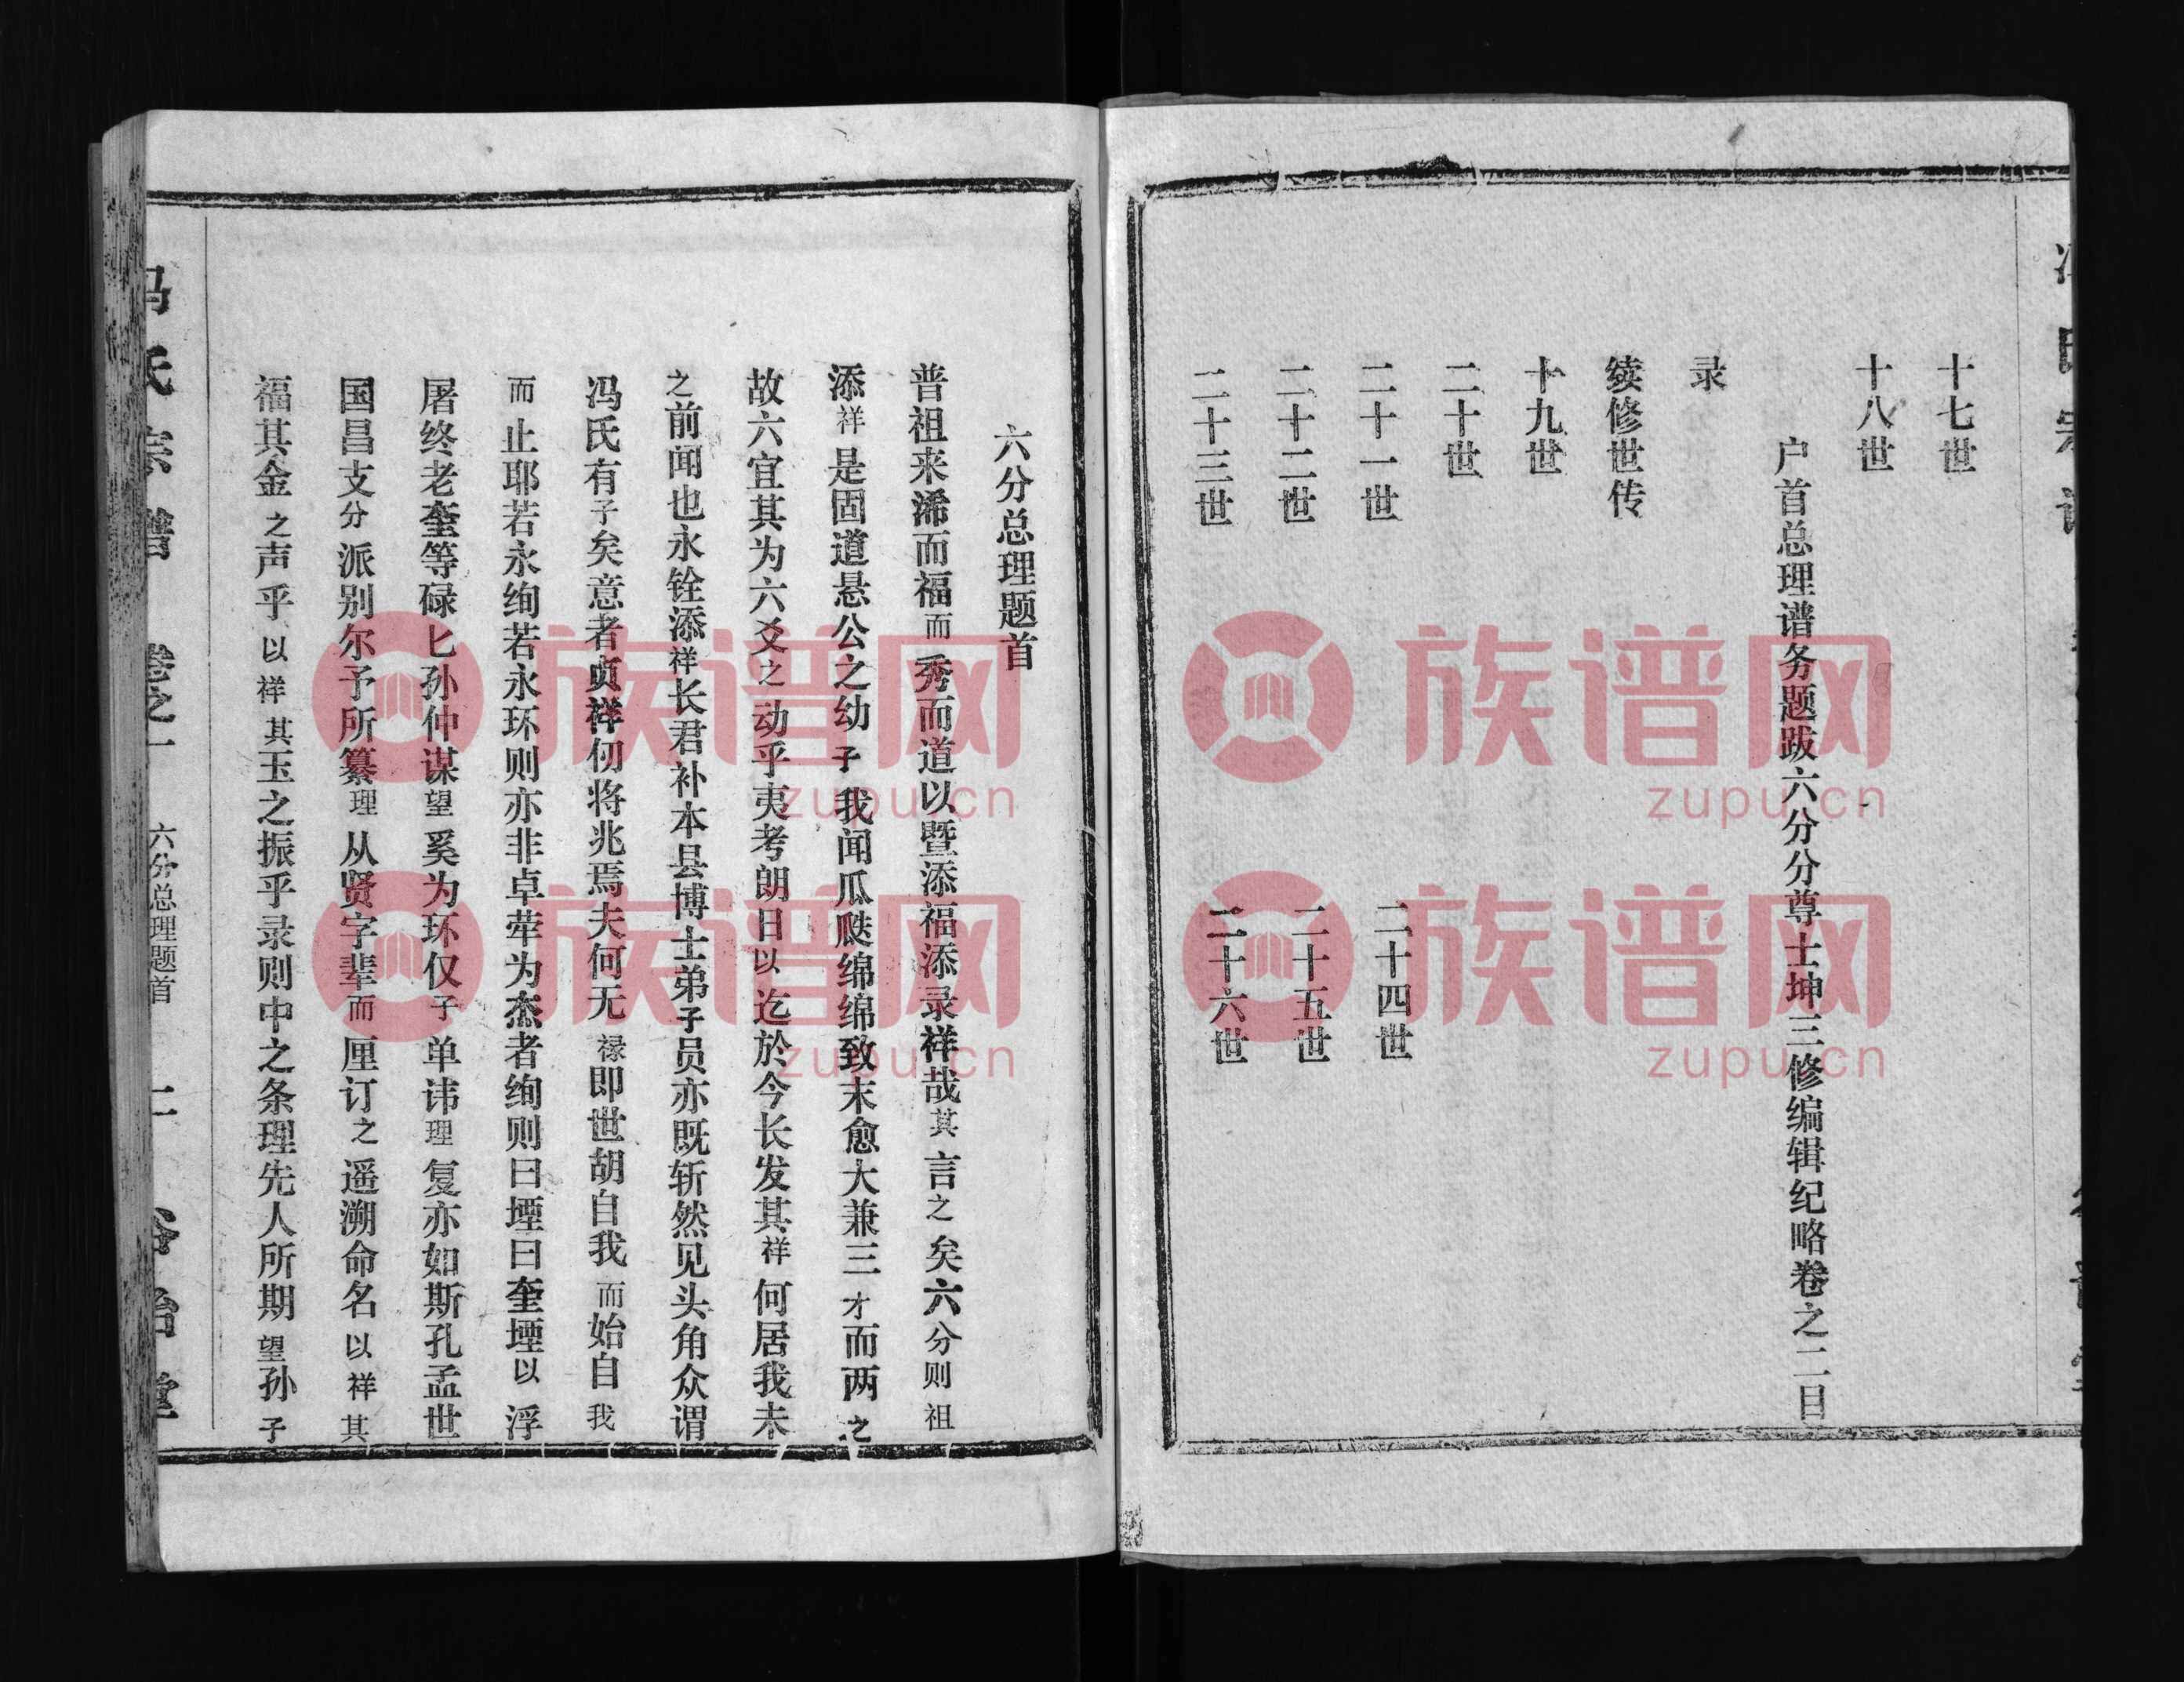 十七世
十八世
户首总理谱务题跋六分分尊士坤三修编辑纪略卷之二目
录
续修世传
十九世
二十世
二十一世
二十四世
二十二世
二十五世
二十三世
二十六世
六分总理题首
普祖来浠而福而秀而道以暨添福添录祥哉其言之矣六分则祖
添祥是固道悬公之幼子我闻瓜瓞绵绵致末愈大兼三才而两之
故六宜其为六爻之动乎夷考朗日以迄於今长发其祥何居我未
之前闻也永铨添祥长君补本县博士弟子员亦既斩然见头角众谓
冯氏有子矣意者贞祥仞将兆焉夫何无禄即世胡自我而始自我
而止耶若永绚若永环则亦非卓荦为杰者绚则曰堙曰奎堙以浮
屠终老奎等碌匕孙仲谋望奚为环仅子单讳理复亦如斯孔孟世
国昌支分派别尔予所纂理从贤字辈而厘订之遥溯命名以祥其
福其金之声乎以祥其玉之振乎录则中之条理先人所期望孙子
冯氏宗谱
卷之一
六分总理题首
族谱网
zupu.cn
族谱网
zupu.cn
族谱网
zupu.cn
族谱网
zupu.cn